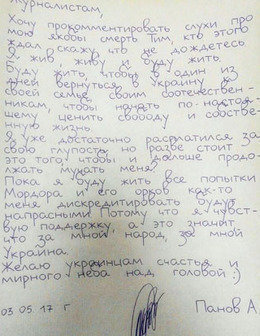 Журналистам,
Хочу прокомментировать слухи про
мою якобы смерть. Тим, кто этого
ждал скажу что не дождетесь
Я жив, живу и буду жить.
Буду жить, чтобы в один из
дней вернуться в Украину к
своей семье, своим соотечествен-
никам, чтобы начать по-настоя-
щему ценить свободу и собстве-
нную жизнь
Я уже достаточно расплатился за
свою глупость, но разве стоит
это того, чтобы и дальше продо-
лжать мучать меня.
Пока я буду жить все попытки
Мордора и его орков как-то
меня дискредитировать будут
напрасными. Потому что я чувст-
вую поддержку, а это значит
что за мной, народ, за мной
Украина.
Желаю украинцам счастья и
мирного неба над головой :)
03 05. 17 г Панов А